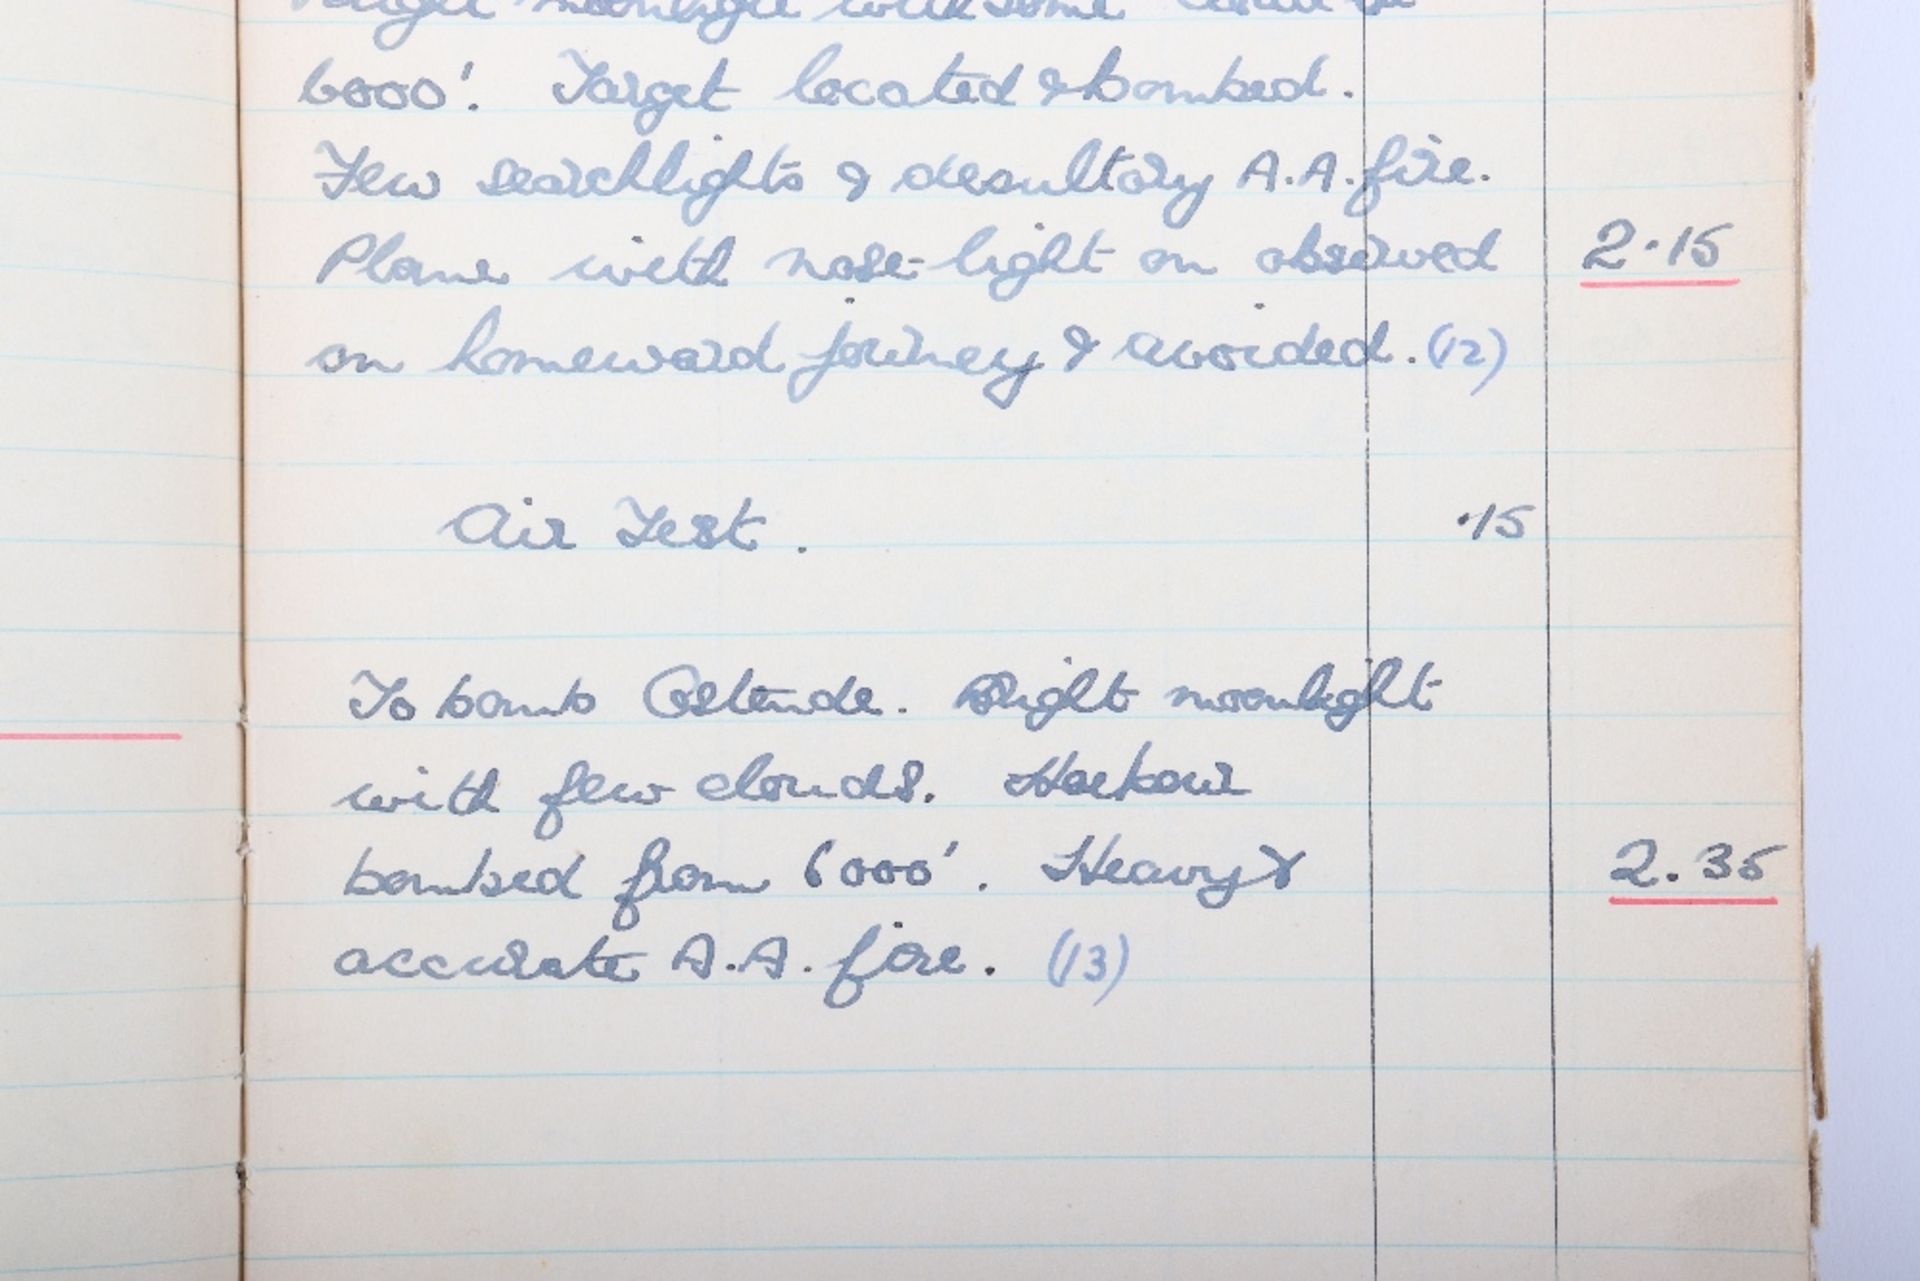 moonlight with some cloud at
6000'. Target located & bombed.
Few searchlights & desultory A.A. fire.
Plane with nose-light on observed 2·15
on homeward journey & avoided. (12)
Air Test. ·15
To bomb Ostende. Bright moonlight
with few clouds. Harbour
bombed from 6000'. Heavy & 2.35
accurate A.A. fire. (13)